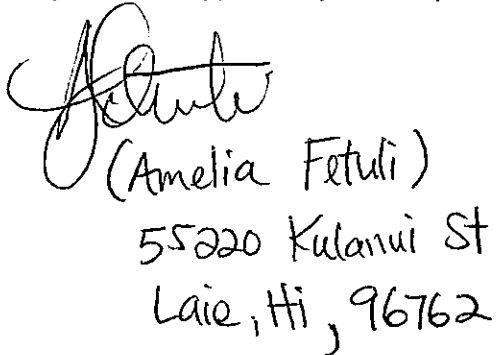 (Amelia Fetuli)
55220 Kulanui St
Laie, Hi, 96762